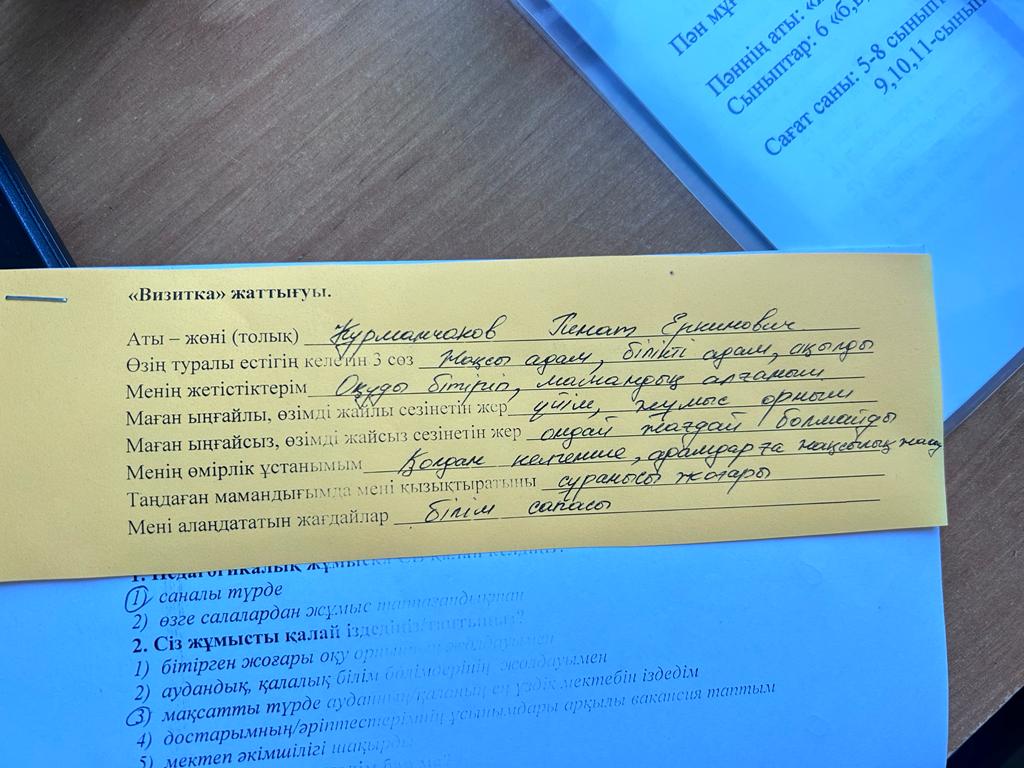 Пән мұғ
Пәннің аты: «
Сыныптар: 6 «б,
Сағат саны: 5-8 сынып
9,10,11-сынып
«Визитка» жаттығуы.
Аты – жөні (толық) Курманчаков Тинат Еркинович
Өзің туралы естігің келетін 3 сөз жақсы адам, білікті адам, ақылды
Менің жетістіктерім Оқуды бітіріп, мамандық алғаным
Маған ыңғайлы, өзімді жайлы сезінетін жер үйім, жұмыс орным
Маған ыңғайсыз, өзімді жайсыз сезінетін жер ондай жағдай болмайды
Менің өмірлік ұстанымым Қолдан келгенше, адамдарға жақсылық жасау
Таңдаған мамандығымда мені қызықтыратыны сұранысы жоғары
Мені алаңдататын жағдайлар білім сапасы
1. Педагогикалық жұмысқа Сіз қалай келдіңіз?
1) саналы түрде
2) өзге салалардан жұмыс таппағандықтан
2. Сіз жұмысты қалай іздедіңіз/таптыңыз?
1) бітірген жоғары оқу орнының жолдауымен
2) аудандық, қалалық білім бөлімдерінің жолдауымен
3) мақсатты түрде ауданның/қаланың ең үздік мектебін іздедім
4) достарымның/әріптестерімнің ұсынымдары арқылы вакансия таптым
5) мектеп әкімшілігі шақырды